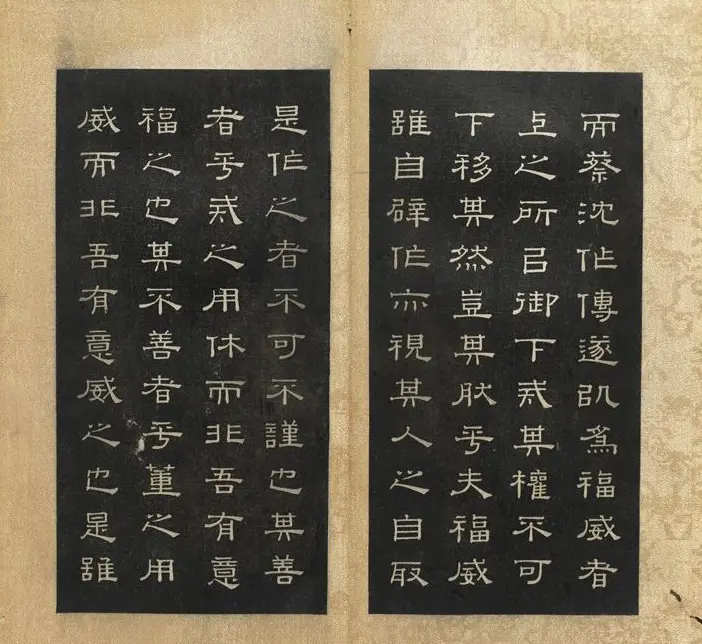 而蔡沈作傳遂以為福威者
上之所以御下戒其權不可
下移其然豈其然乎夫福威
雖自辟作亦視其人之自取
是作之者不可不謹也其善
者乎戒之用休而非吾有意
福之也其不善者乎董之用
威而非吾有意威之也是雖